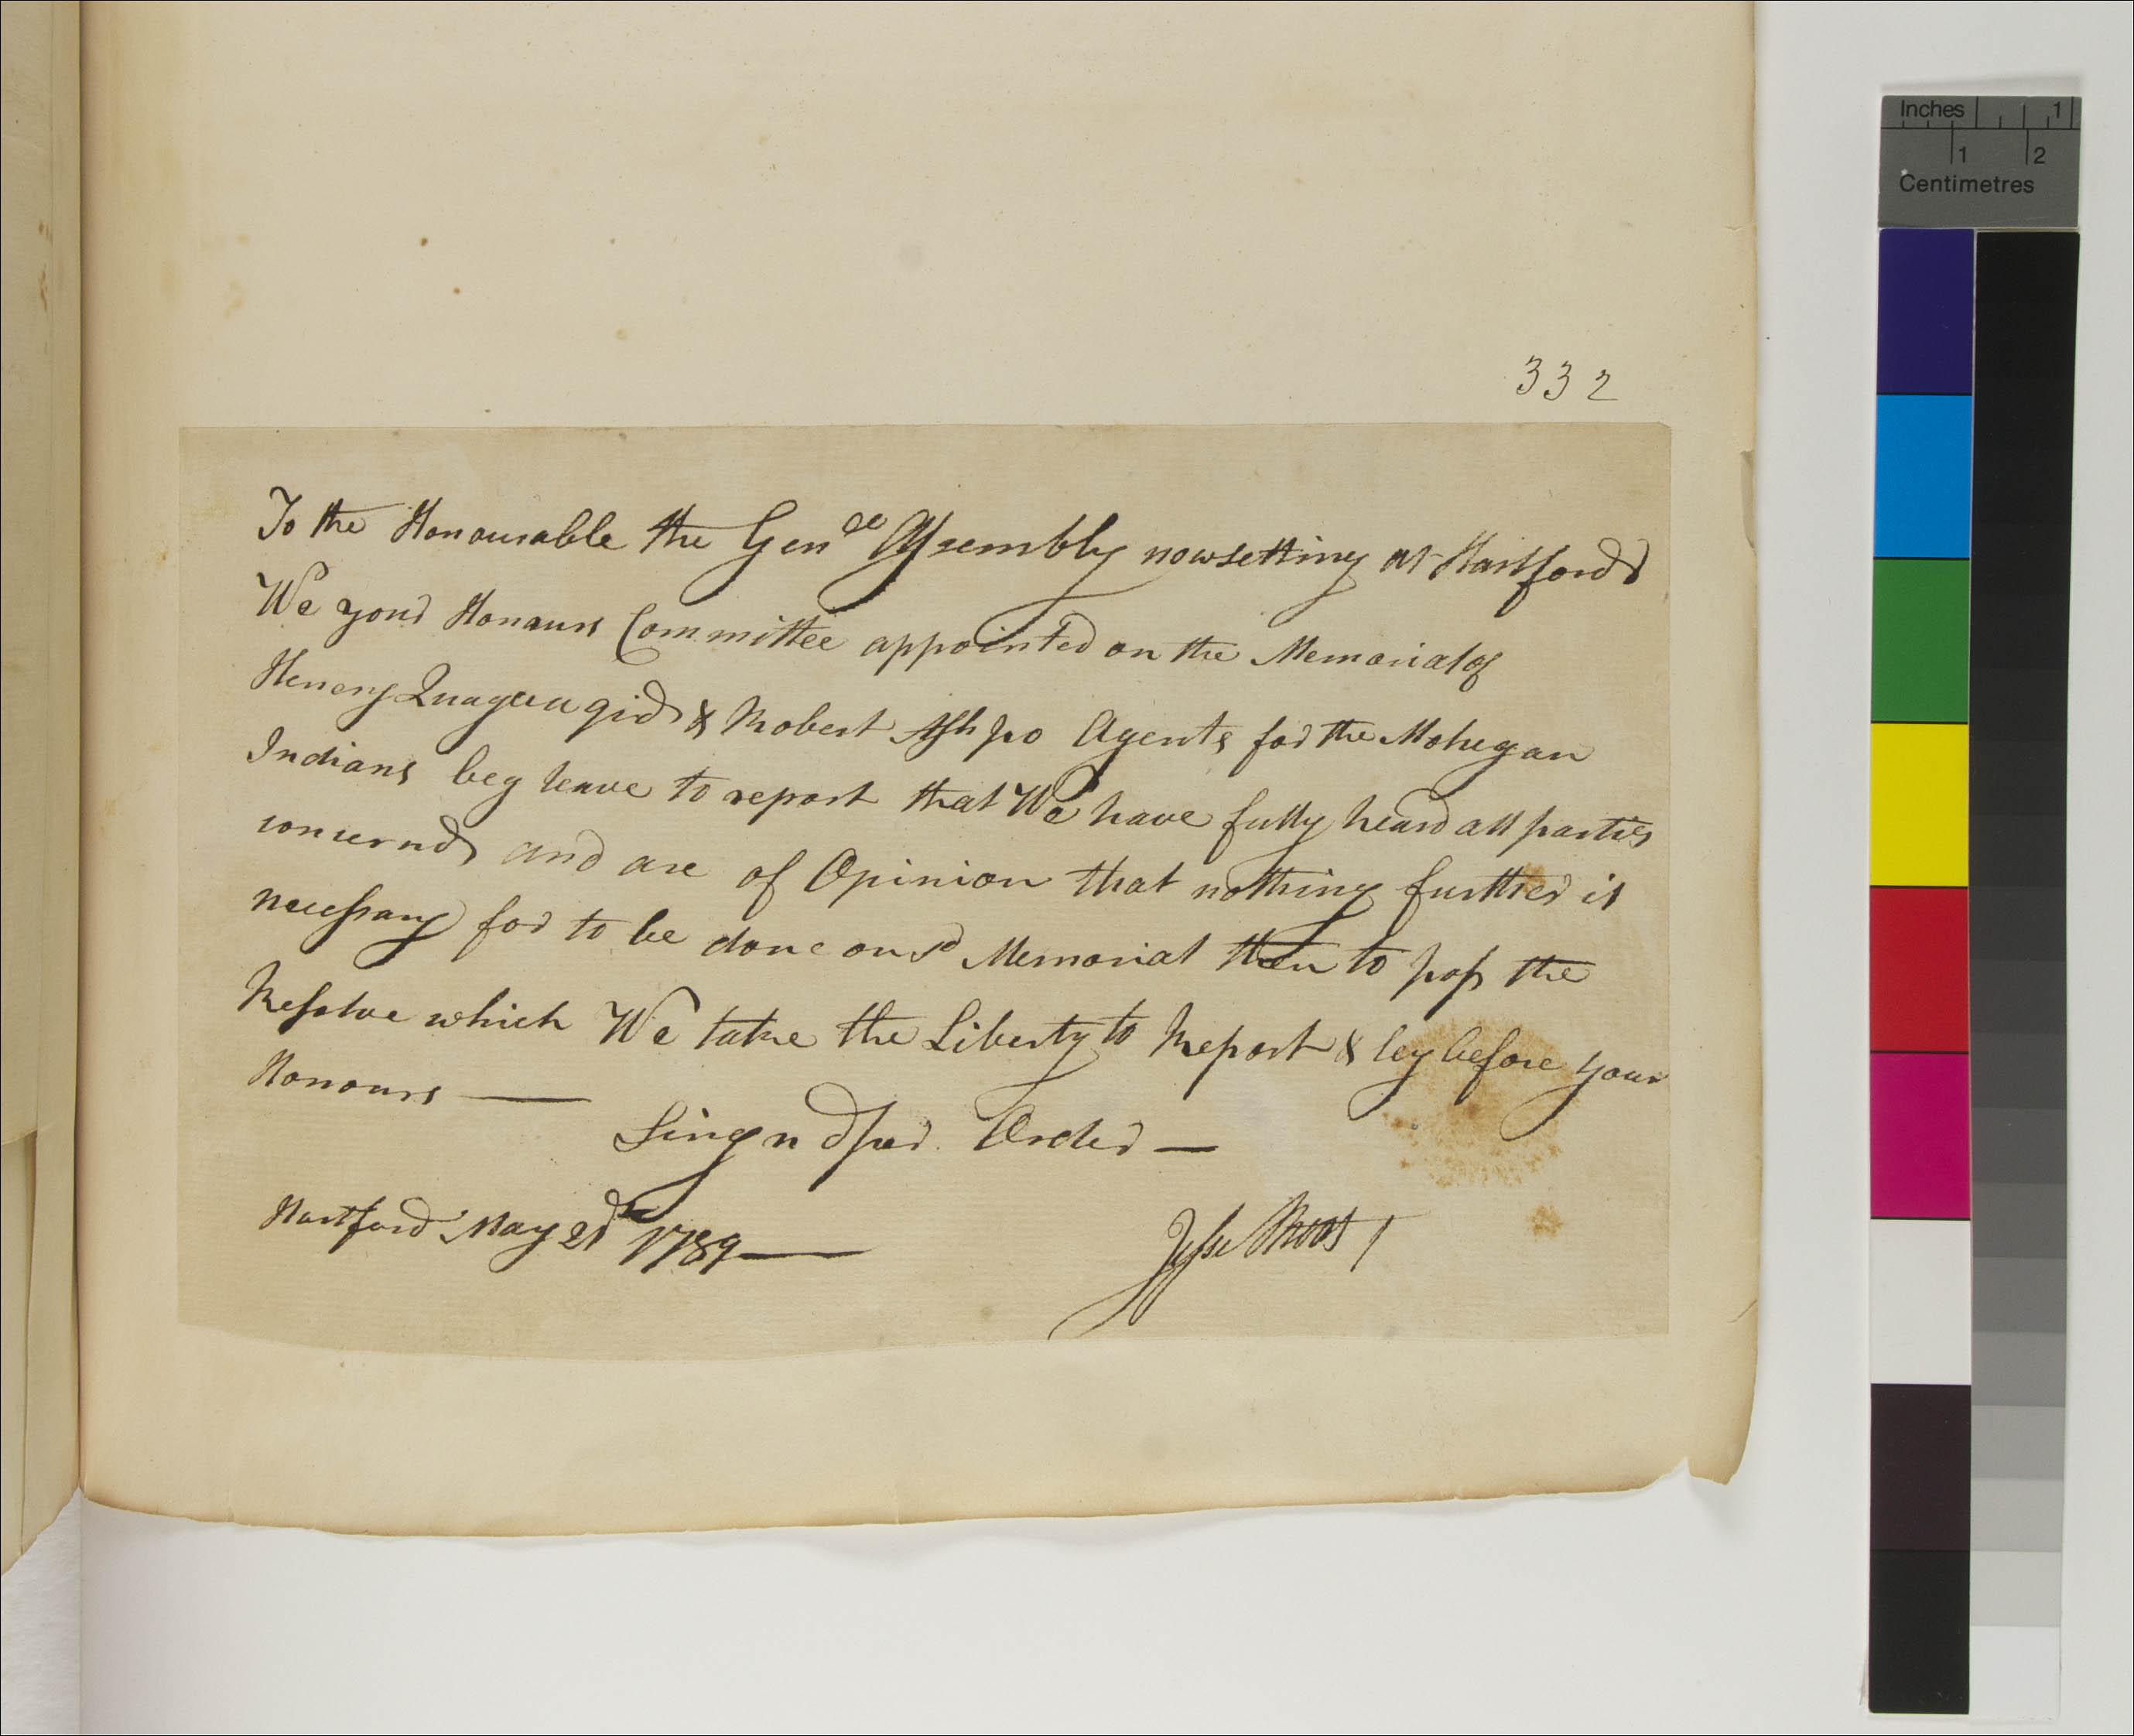 332
To the Honourable the Genll Assembly now setting at Hartford
We your Honours Committee appointed on the Memorial of
Henery Quaquaquid & Robert Ashpo Agents for the Mohegan
Indians beg leave to report that We have fully heard all parties
concernd and are of Opinion that nothing further is
necessary for to be done on sd Memorial then to pass the
Resolve which We take the Liberty to Report & ley before your
Honours —
Singnd per Order —
Hartford May 21st 1789 —
Jesse Root
Inches 1
1 2
Centimetres